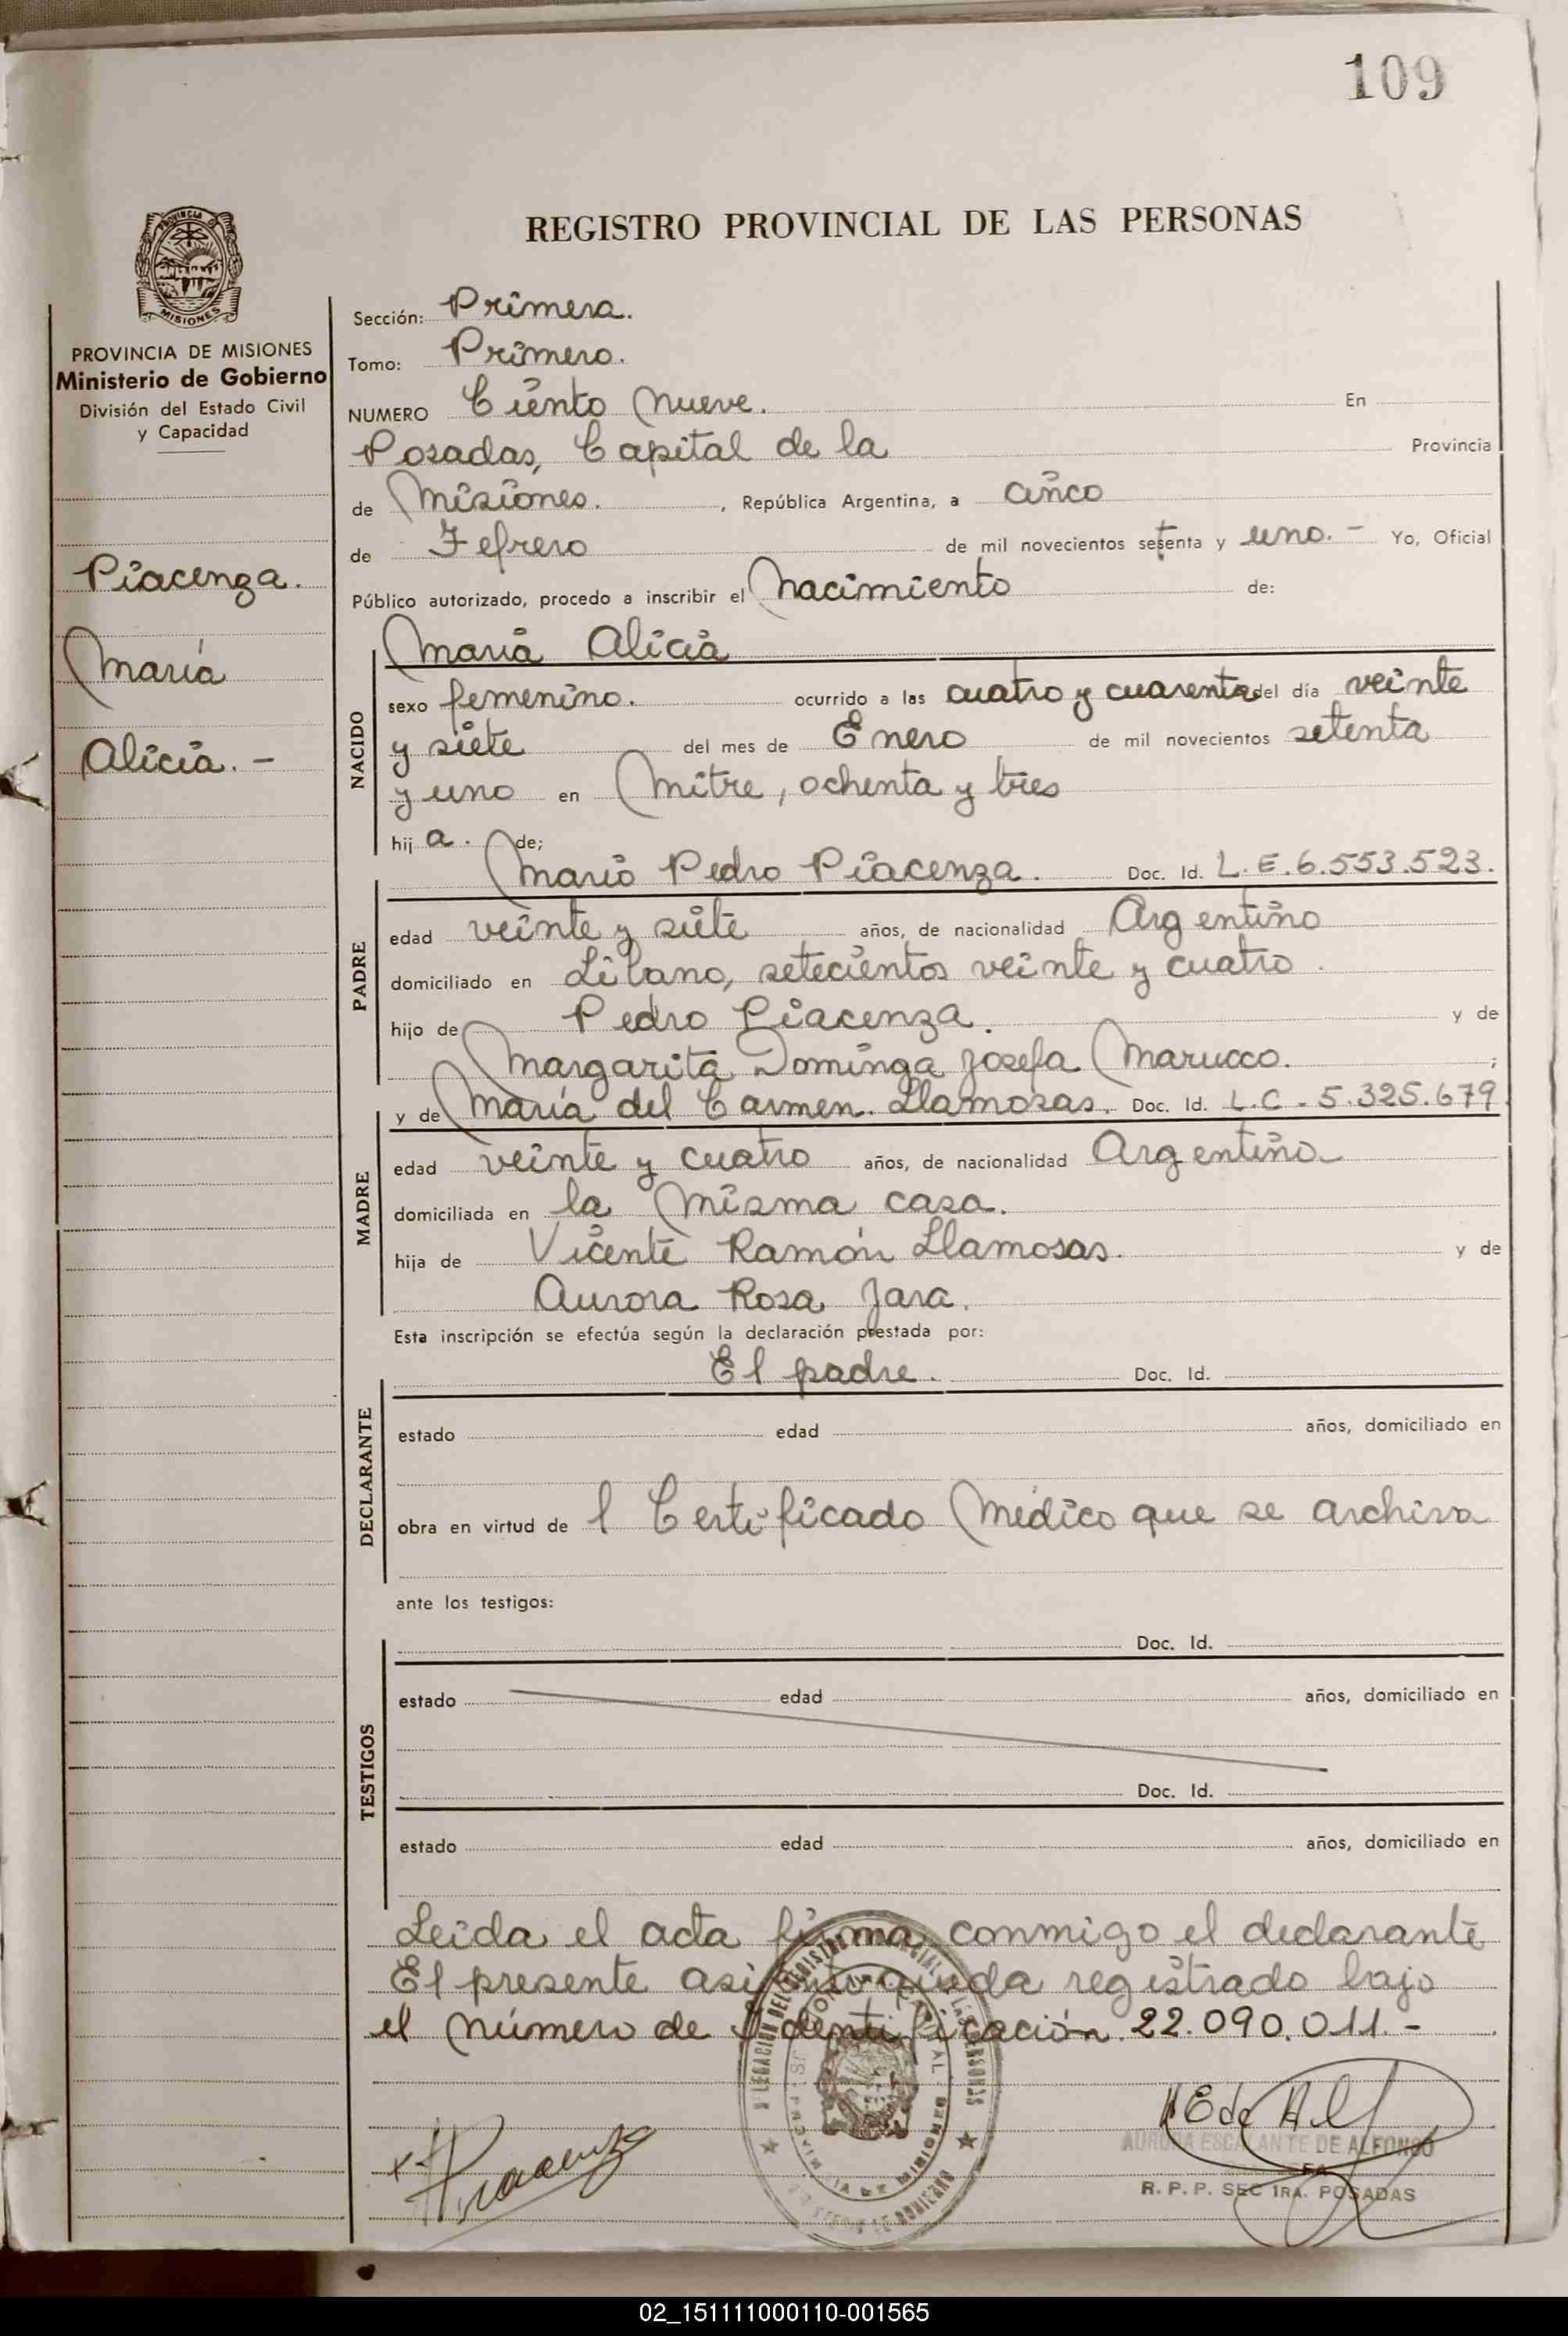 109
REGISTRO PROVINCIAL DE LAS PERSONAS
PROVINCIA DE MISIONES
PROVINCIA DE MISIONES
Ministerio de Gobierno
División del Estado Civil
y Capacidad
Piacenza.
María
Alicia. -
Sección: Primera.
Tomo: Primero.
NUMERO Ciento Nueve. En
Posadas, Capital de la Provincia
de Misiones. , República Argentina, a cinco
de Fefrero de mil novecientos setenta y uno. - Yo, Oficial
Público autorizado, procedo a inscribir el Nacimiento de:
NACIDO
María Alicia
sexo femenino. ocurrido a las cuatro y cuarenta del día veinte
y siete del mes de Enero de mil novecientos setenta
y uno en Mitre, ochenta y tres
hij a. de;
PADRE
Mario Pedro Piacenza. Doc. Id. L.E.6.553.523.
edad veinte y siete años, de nacionalidad Argentino
domiciliado en Libano, setecientos veinte y cuatro.
hijo de Pedro Piacenza. y de
Margarita Dominga Josefa Marucco. ;
MADRE
y de María del Carmen Llamosas. Doc. Id. L.C - 5.325.679
edad veinte y cuatro años, de nacionalidad Argentina
domiciliada en la misma casa.
hija de Vicente Ramón Llamosas. y de
Aurora Rosa Jara.
Esta inscripción se efectúa según la declaración prestada por:
DECLARANTE
El padre. Doc. Id.
estado edad años, domiciliado en
obra en virtud de l Certificado Médico que se archiva
ante los testigos:
TESTIGOS
Doc. Id.
estado edad años, domiciliado en
Doc. Id.
estado edad años, domiciliado en
Leída el acta firma conmigo el declarante
El presente asiento queda registrado bajo
el número de Identificación 22.090.011. -
Piacenza
AURORA ESCALANTE DE ALFONSO
R. P. P. SEC 1RA. POSADAS
02_151111000110-001565